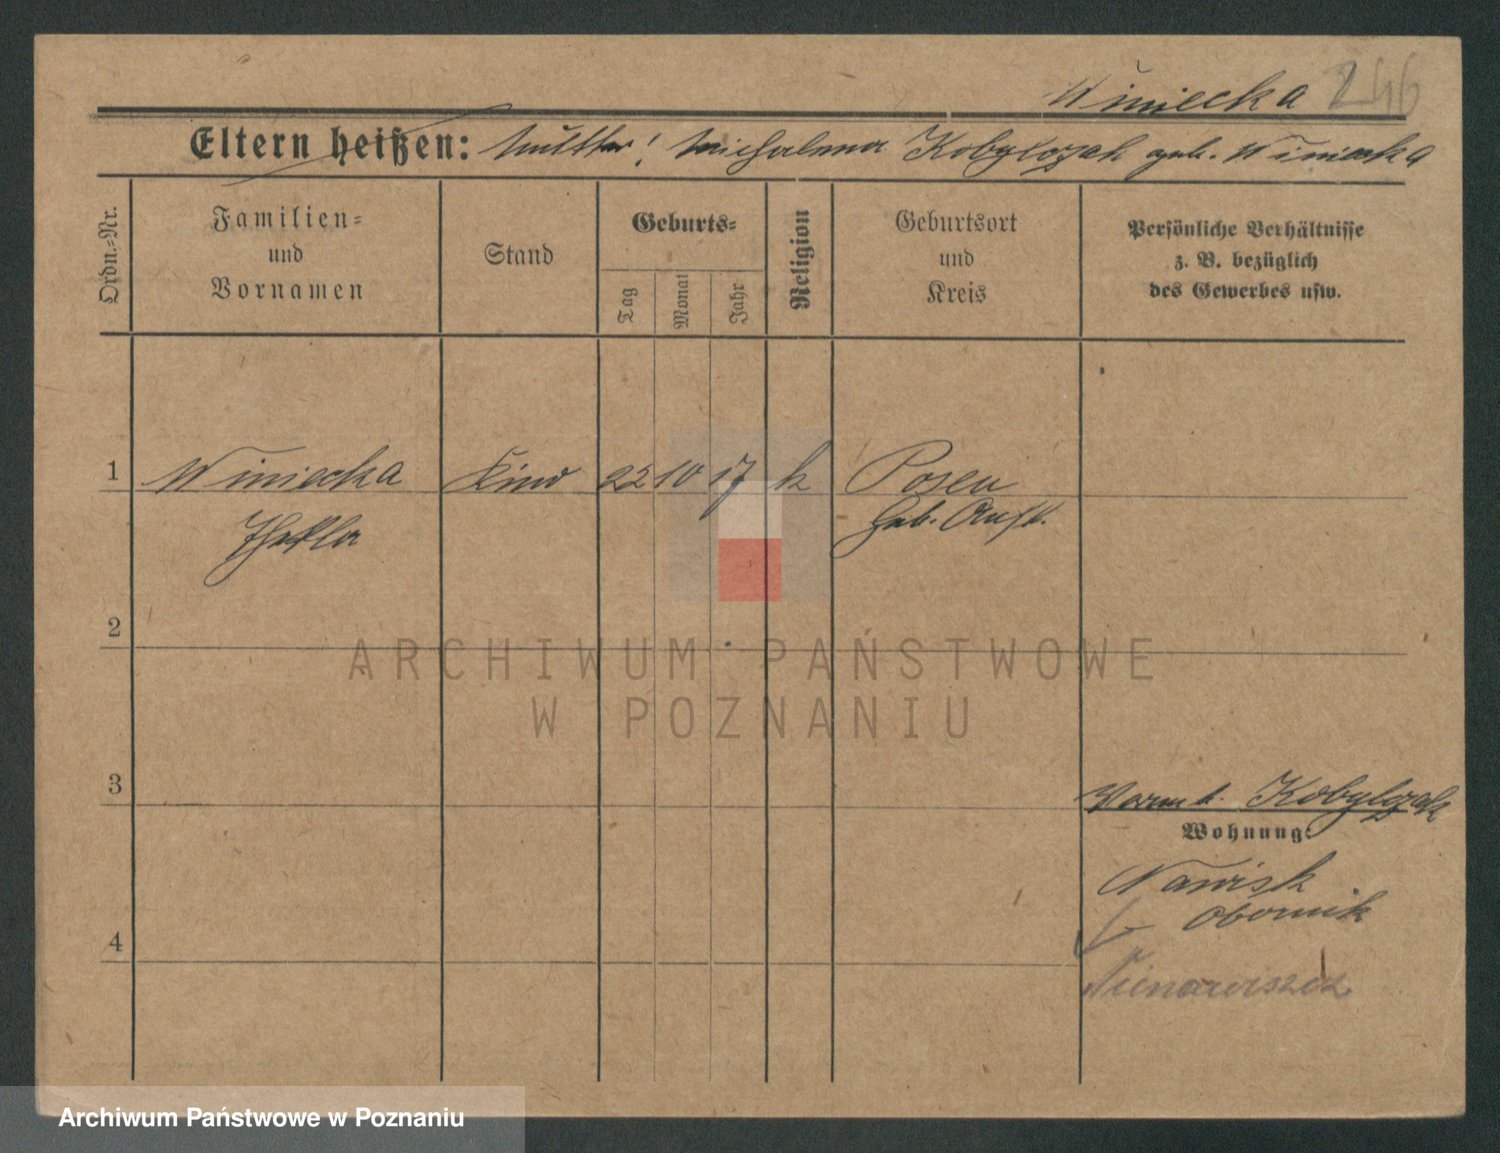 Winiecka 246
Eltern heißen: Mutter! Michalina Kobylczak geb. Winiecka
Ordn.-Nr.
Familien-
und
Vornamen
Stand
Geburts-
Tag
Monat
Jahr
Religion
Geburtsort
und
Kreis
Persönliche Verhältnisse
z. B. bezüglich
des Gewerbes usw.
1 Winiecka Kind 22 10 17 k Posen
Thekla Geb. Anst.
2
3
Vorm. Kobylczak
Wohnung:
Obornik
4
ARCHIWUM PAŃSTWOWE
W POZNANIU
Archiwum Państwowe w Poznaniu